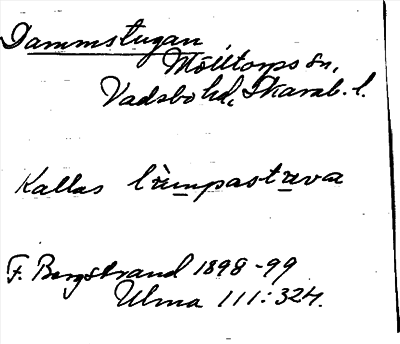 Dammstugan,
Mölltorps sn,
Vadsbo hd, Skarab. l.
Kallas lèmpastæva
F. Bergstrand 1898-99
Ulma 111:324.